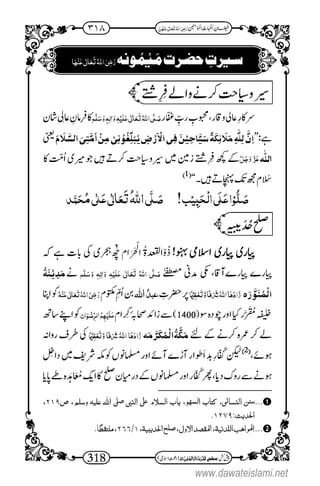 فیضانِ اُمَّہاتُ المؤمنین ۳۱۸
سیرتِ حضرت مَیْمُونہ رَضِیَ اللہُ تَعَالٰی عَنْہَا
سیر وسیاحت کرنے والے فرشتے
سرکارِ عالی وقار، محبوبِ ربِّ غفّار صَلَّی اللہُ تَعَالٰی عَلَیْہِ وَاٰلِہٖ وَسَلَّم کا فرمانِ عالی شان
ہے: ”اِنَّ لِلّٰہِ مَلَائِکَۃً سَیَّاحِیْنَ فِی الْاَرْضِ یُبَلِّغُوْنِیْ مِنْ اُمَّتِیَ السَّلَامَ یعنی
اللہ عَزَّ وَجَلَّ کے کچھ فرشتے زمین میں سیر وسیاحت کرتے ہیں جو میری اُمَّت کا
سلام مجھ تک پہنچاتے ہیں۔“(1)
صَلُّوْا عَلَی الْحَبِیْب! صَلَّی اللہُ تَعَالٰی عَلٰی مُحَمَّد
صلحِ حُدَیبِیہ
پیاری پیاری اسلامی بہنو! ذُوالقعدۃُ الْحَرام چھ ہجری کی بات ہے کہ
پیارے پیارے آقا، مکی مدنی مصطفٰے صَلَّی اللہُ تَعَالٰی عَلَیْہِ وَاٰلِہٖ وَسَلَّم نے مَدِیْنَۃُ
الْمُنَوَّرَہ زَادَہَا اللہُ شَرَفًا وَّتَعْظِیْمًا پر حضرت عبدُ اللہ بن اُمِّ مکتوم رَضِیَ اللہُ تَعَالٰی عَنْہُ کو اپنا
خلیفہ مُقَرَّر کیا اور چودہ سو (1400) سے زائد صحابۂ کرام عَلَیْہِمُ الرِّضْوَان کو اپنے ساتھ
لے کر عمرہ کرنے کے لئے مَکَّۃُ الْمُکَرَّمَہ زَادَہَا اللہُ شَرَفًا وَّتَعْظِیْمًا کی طرف روانہ
ہوئے،(2) لیکن کفّارِ بد اطوار آڑے آئے اور مسلمانوں کو مکہ شریف میں داخل
ہونے سے روک دیا، پھر کفّار اور مسلمانوں کے درمیان صلح کا ایک مُعَاہَدہ طے پایا
1...سنن النسائی، کتاب السھو، باب السلام علی النبی صلی اللہ علیہ وسلم، ص۲۱۹،
الحدیث:۱۲۷۹.
2...المواھب اللدنیۃ، المقصد الاول، صلح الحدیبیۃ، ۱/۲۶۶، ملتقطًا.
318
www.dawateislami.net